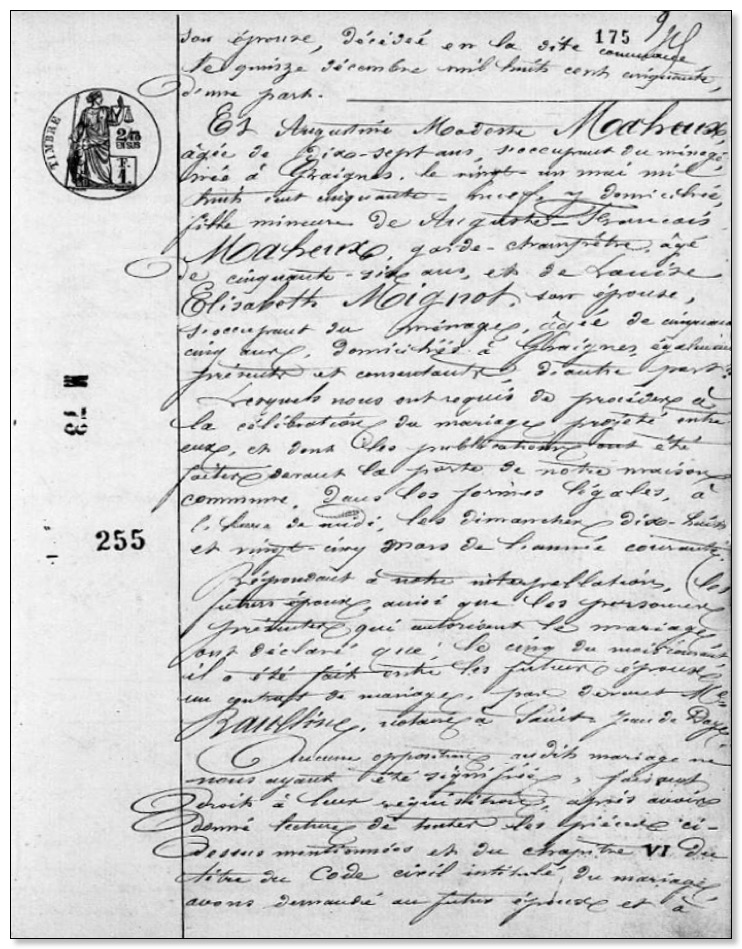 175
son épouse, décédée en la dite commune
le quinze décembre mil huit cent cinquante,
d'une part.
Et Augustine Modeste Maheux,
âgée de dix-sept ans, s'occupant du ménage
née à Graignes, le vingt-un mai mil
huit cent cinquante-neuf, y domiciliée,
fille mineure de Auguste François
Maheux, garde-champêtre, âgé
de cinquante-six ans, et de
Elisabeth Mignot, son épouse,
s'occupant du ménage, âgée de cinquante
cinq ans, domiciliés à Graignes, également
présents et consentants, d'autre part.
Lesquels nous ont requis de procéder à
la célébration du mariage projeté entre
eux, et dont les publications ont été
faites devant la porte de notre maison
commune, dans les formes légales, à
l'heure de midi, les dimanches dix-huit
et vingt-cinq mars de l'année courante.
Répondant à notre interpellation, les
futurs époux, ainsi que les personnes
présentes qui autorisent le mariage,
ont déclaré que le cinq du mois courant
il a été fait entre les futurs époux
un contrat de mariage, par devant Me
notaire à Saint Jean de Daye
Aucune opposition audit mariage ne
nous ayant été signifiée, faisant
droit à leur réquisition, après avoir
donné lecture de toutes les pièces ci-
dessus mentionnées et du chapitre VI du
titre du Code civil intitulé du mariage,
avons demandé au futur époux et à
TIMBRE
255